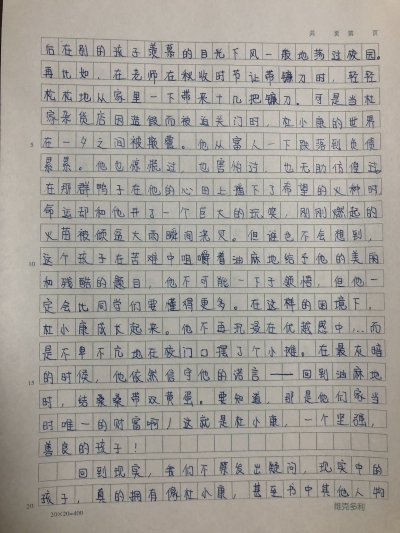 共 页 第 页
后在别的孩子羡慕的目光下风一般地荡过校园。
再比如，在老师在秋收时节让带镰刀时，轻轻
松松地从家里一下带来十几把镰刀。可是当杜
家杂货店因造假而被迫关门时，杜小康的世界
5 在一夕之间被颠覆。他从富人一下跌落到负债
累累。他也惊慌过，也害怕过，也无助彷徨过。
在那群鸭子在他的心田上播下了希望的火种时，
命运却和他开了一个巨大的玩笑，刚刚燃起的
火苗被倾盆大雨瞬间浇灭。但谁也不会想到，
10 这个孩子在苦难中咀嚼着油麻地给予他的美丽
和残酷的题目，他不可能一下子领悟，但他一
定会比同学们要懂得更多。在这样的困境下，
杜小康成长起来。他不再沉浸在优越感中，而
是不卑不亢地在校门口摆了个小摊。在最灰暗
15 的时候，他依然信守他的诺言——回到油麻地
时，给桑桑带双黄蛋。要知道，那是他们家当
时唯一的财富啊！这就是杜小康，一个坚强，
善良的孩子！
回到现实，我们不禁发出疑问，现实中的
20 孩子，真的拥有像杜小康，甚至书中其他人物
20×20=400 维克多利